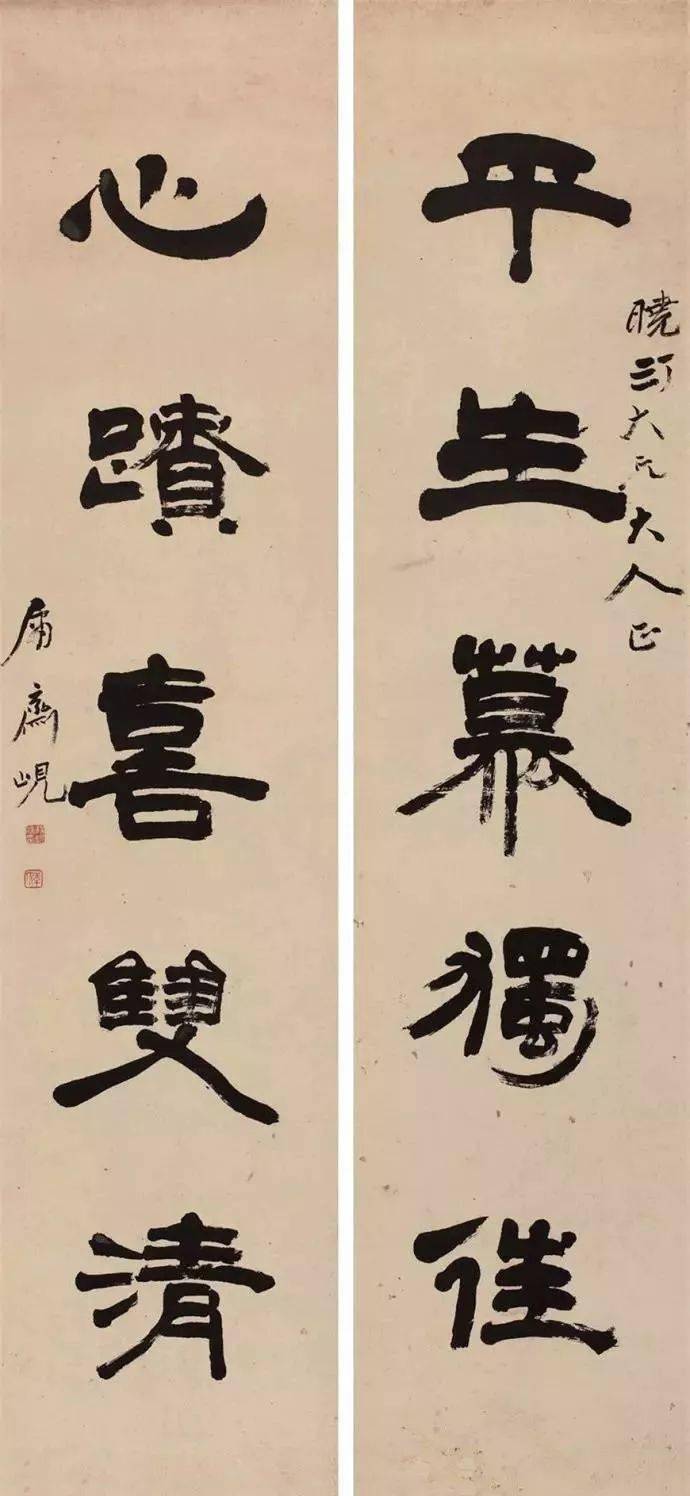 曉汀大兄大人正
平生慕獨往
心蹟喜雙清
庸齋峴